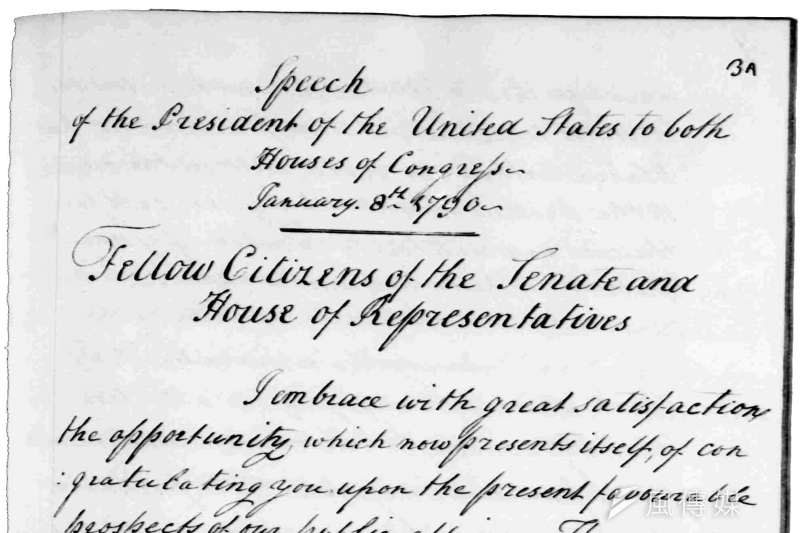 3A
Speech
of the President of the United States to both
Houses of Congress
January. 8th. 1790
Fellow Citizens of the Senate and
House of Representatives
I embrace with great satisfaction
the opportunity, which now presents itself, of con
:gratulating you upon the present favourable
prospects of our public
風傳媒